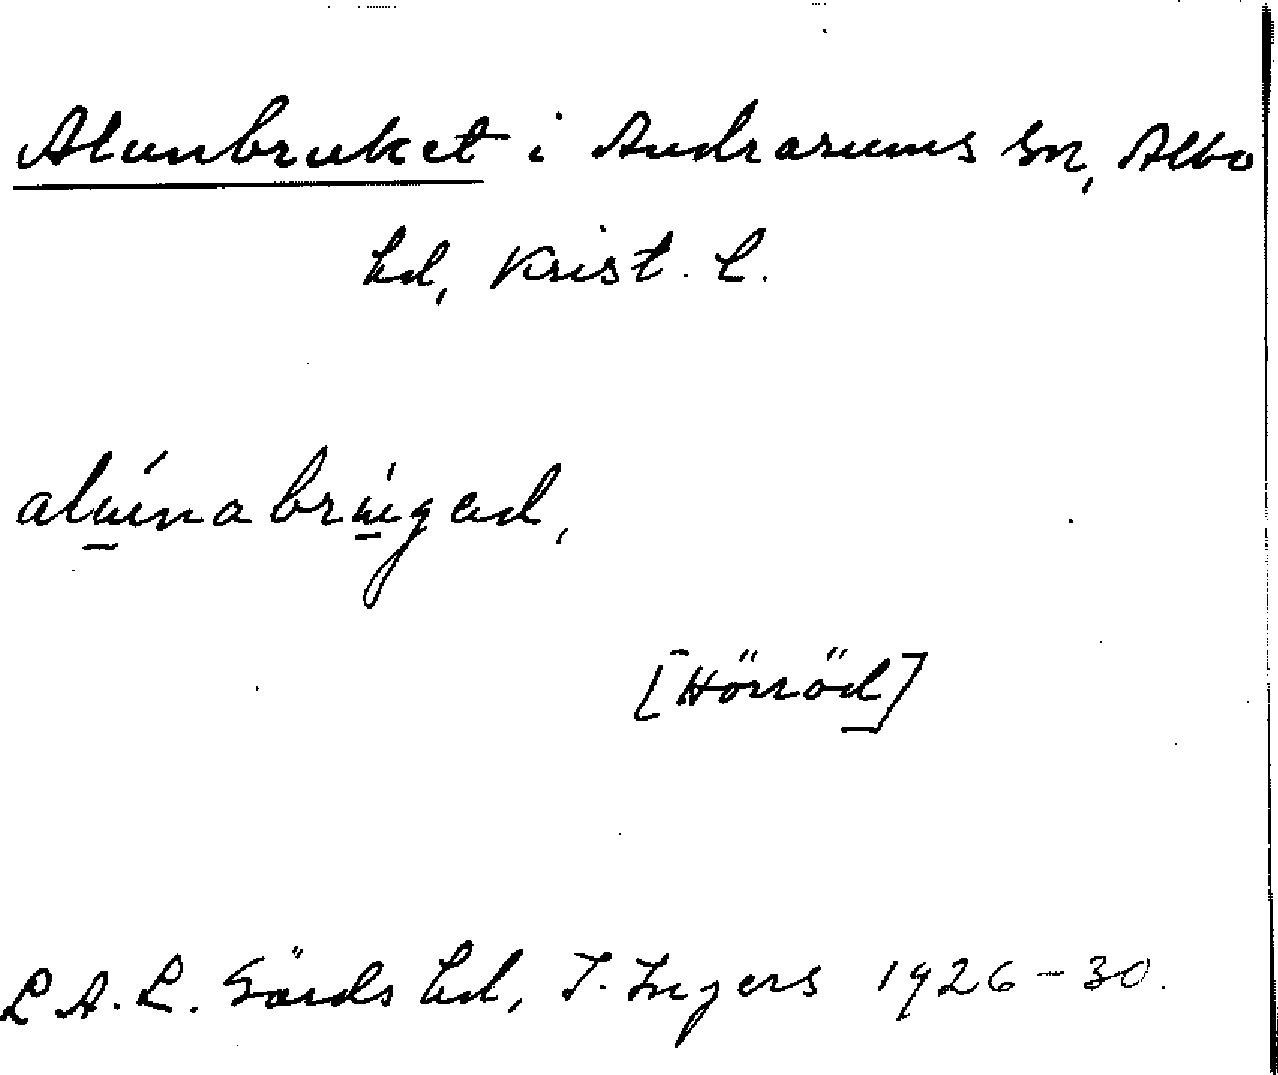 Alunbruket i Andrarums sn, Albo
hd, Krist. L.
alúnabrúgad,
[Hörröd]
L A. L. Gärds hd, I. Ingers 1926-30.